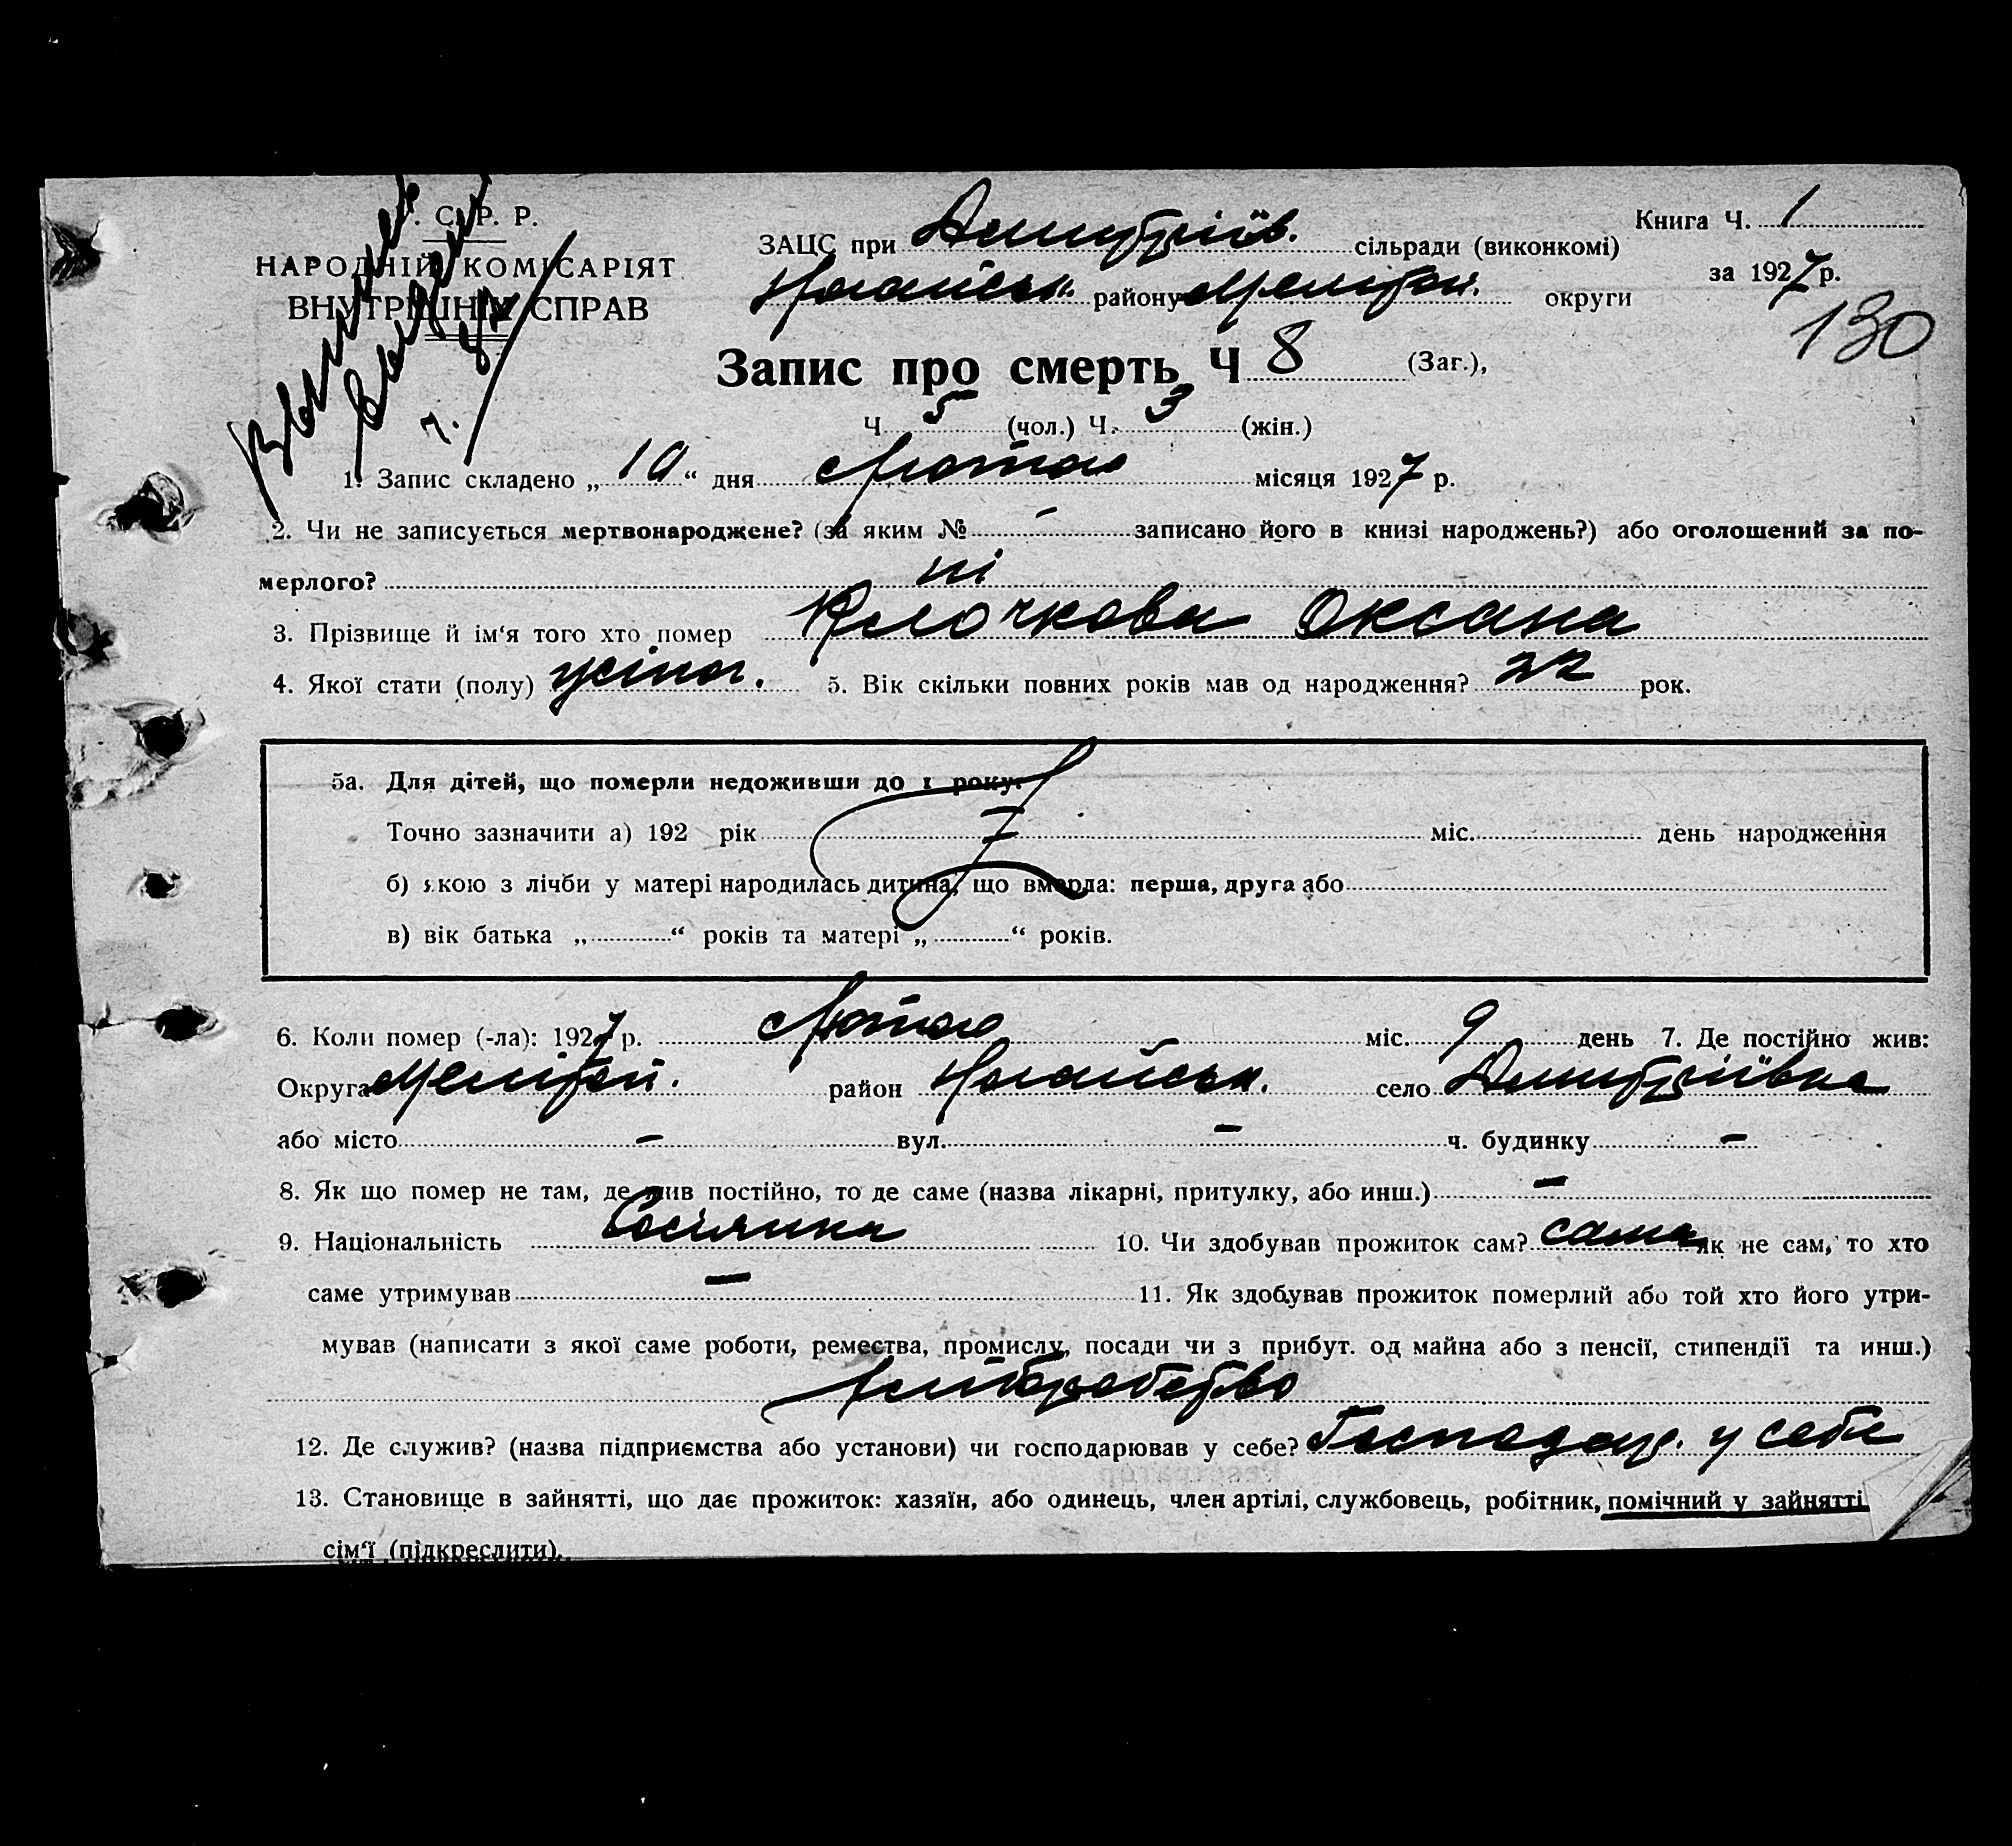 . С. Р. Р.
НАРОДНІЙ КОМІСАРІЯТ
ВНУТРІШНІХ СПРАВ
ЗАЦС при Дмитріїв. сільради (виконкомі)
Ногайськ. району Мелітоп. округи
Книга Ч. 1
за 1927 р.
130
Запис про смерть Ч 8 (Заг.),
Ч 5 (чол.) Ч. 3 (жін.)
1. Запис складено „10“ дня Лютого місяця 1927 р.
2. Чи не записується мертвонароджене? (за яким № - записано його в книзі народжень?) або оголошений за по-
мерлого? ні
3. Прізвище й ім‘я того хто помер Клочкова Оксана
4. Якої стати (полу) жіноч. 5. Вік скільки повних років мав од народження? 22 рок.
5а. Для дітей, що померли недоживши до 1 року.
Точно зазначити а) 192 рік міс. день народження
б) якою з лічби у матері народилась дитина, що вмерла: перша, друга або
в) вік батька „ “ років та матері „ “ років.
6. Коли помер (-ла): 1927 р. Лютого міс. 9 день 7. Де постійно жив:
Округа Мелітоп. район Ногайськ. село Дмитріївка
або місто - вул. - ч. будинку -
8. Як що помер не там, де жив постійно, то де саме (назва лікарні, притулку, або инш.) -
9. Національність Росіянка 10. Чи здобував прожиток сам? сама як не сам, то хто
саме утримував - 11. Як здобував прожиток померлий або той хто його утри-
мував (написати з якої саме роботи, ремества, промислу, посади чи з прибут. од майна або з пенсії, стипендії та инш.)
Хліборобство
12. Де служив? (назва підприємства або установи) чи господарював у себе? Господар. у себе
13. Становище в зайнятті, що дає прожиток: хазяїн, або одинець, член артілі, службовець, робітник, помічний у зайнятті
сім‘ї (підкреслити).